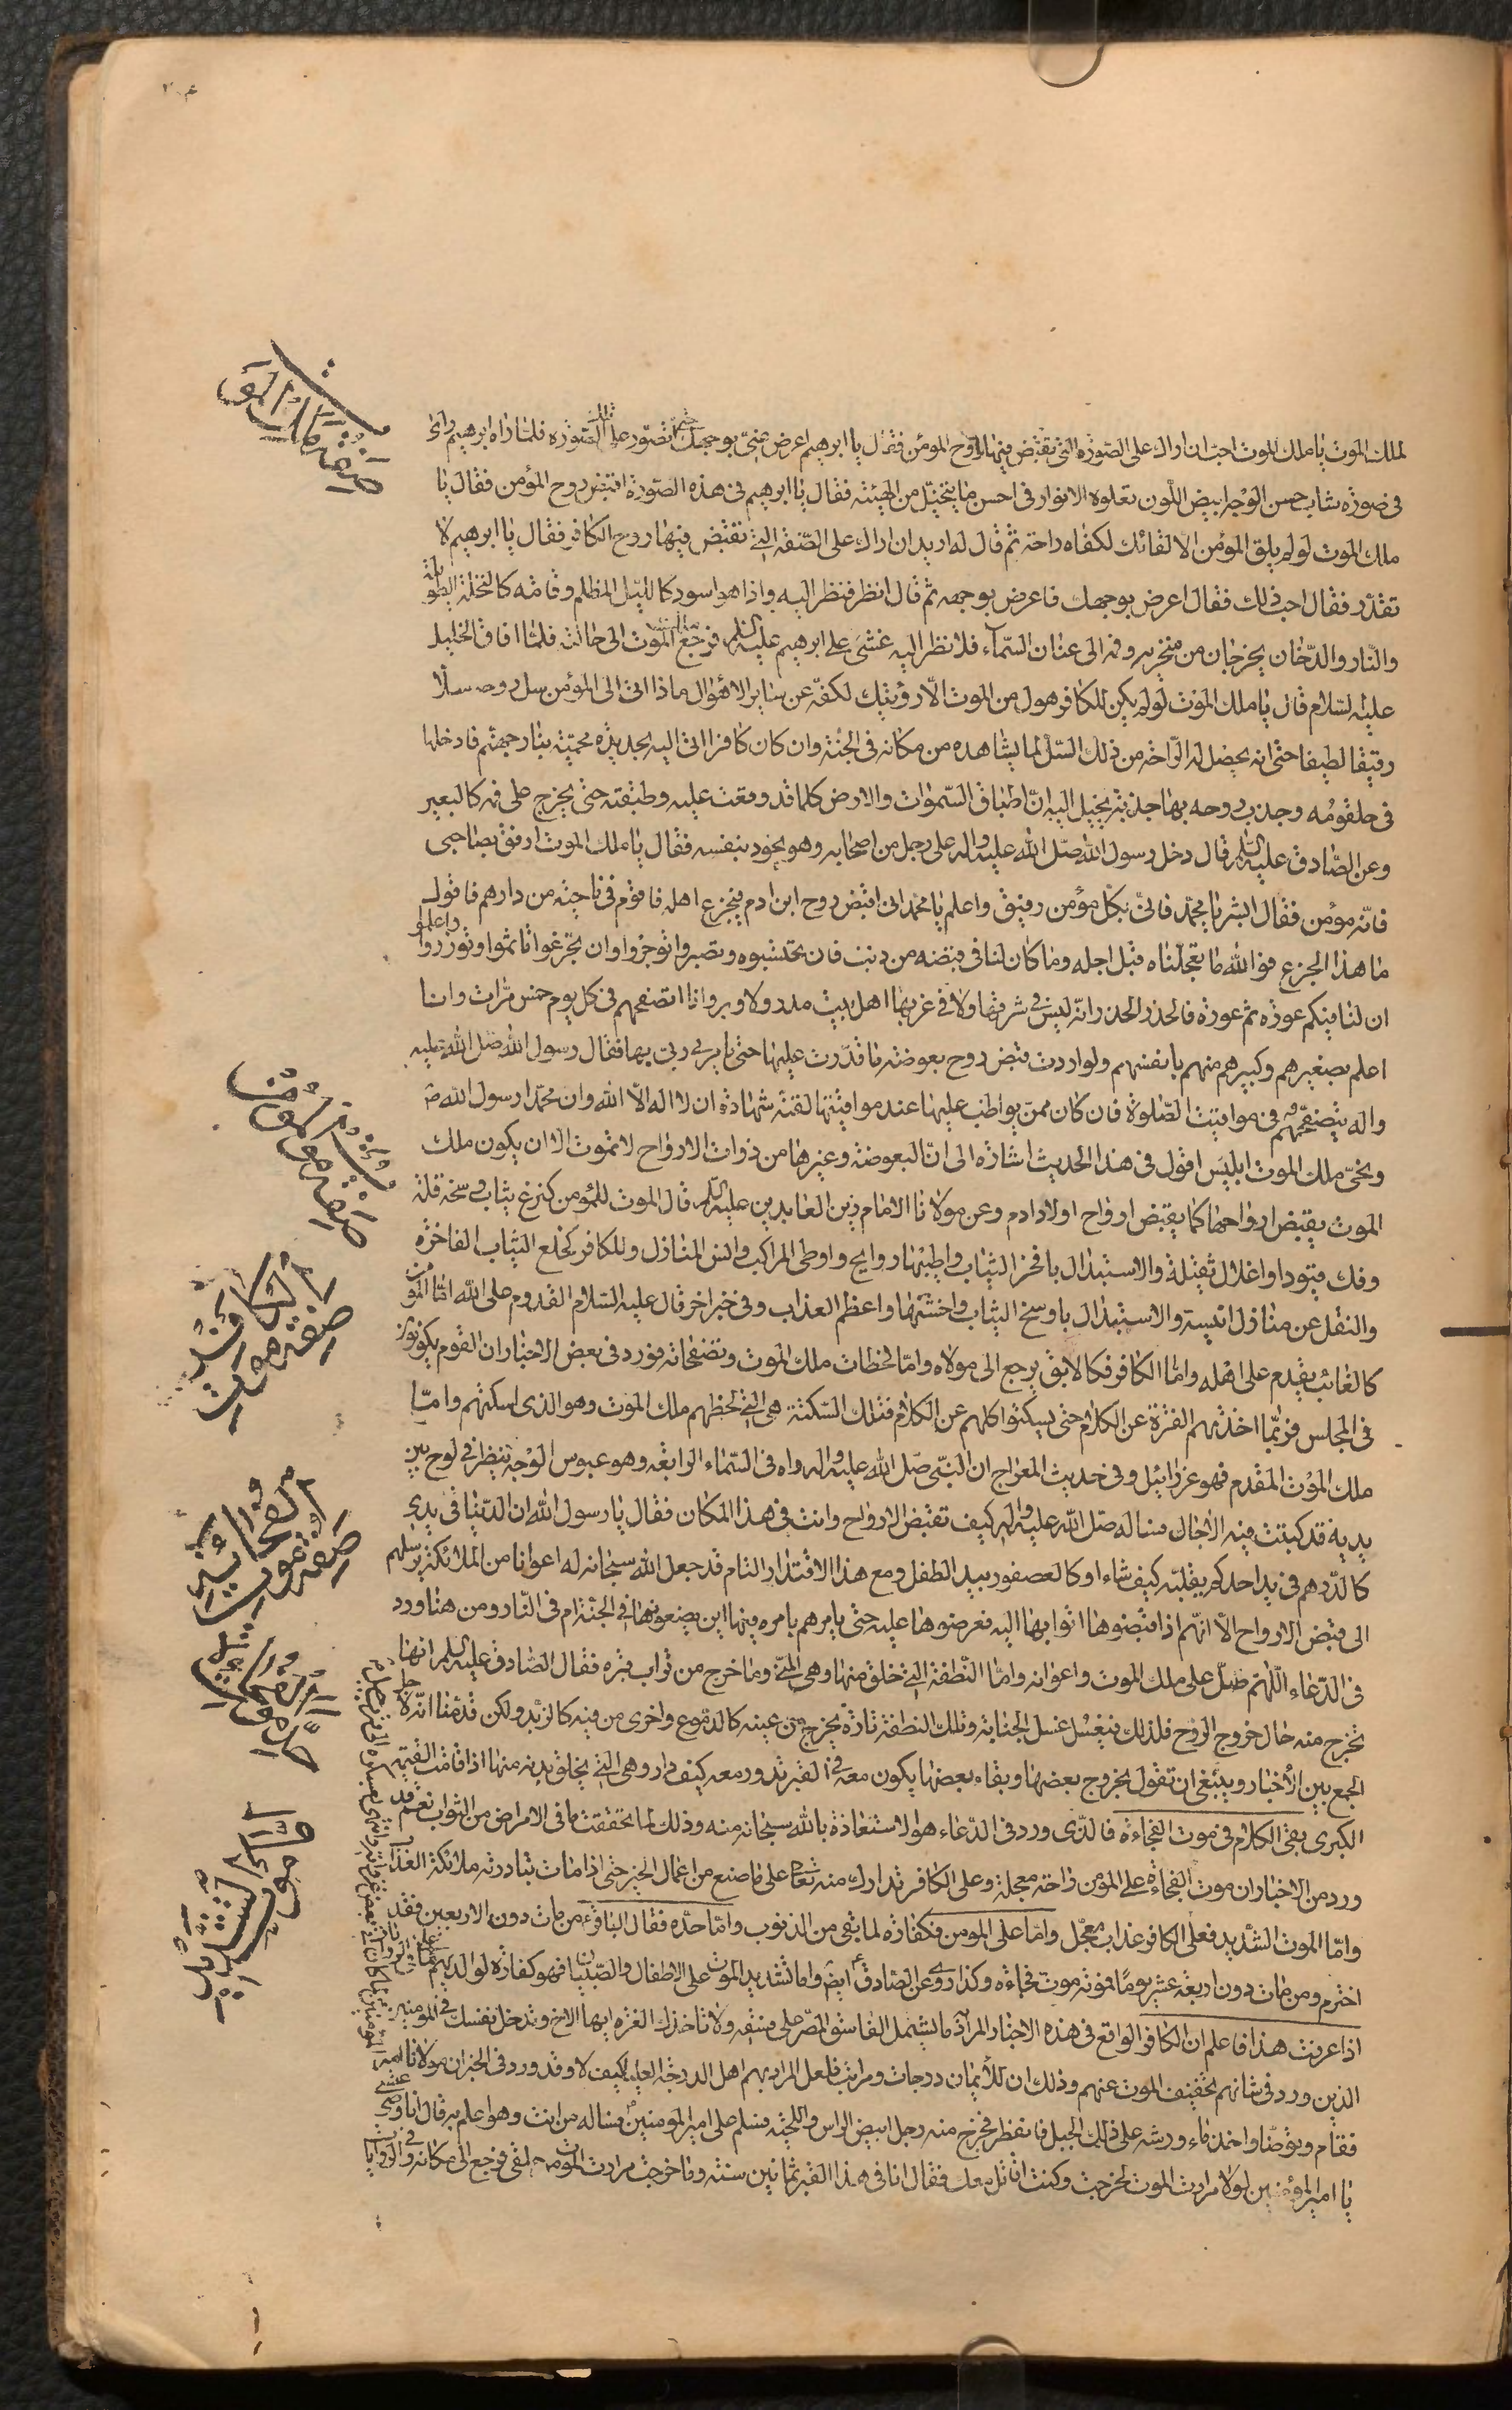 لملك الموت يا ملك الموت احب ان اراك على الصورة التي تقبض فيها روح المؤمن فقال يا ابرهيم اعرض عني بوجهك حتى اتصور على تلك الصورة فلما راه ابرهيم راى
في صورة شاب حسن الوجه ابيض اللون تعلوه الانوار في احسن ما يتخيل من الهيئة فقال يا ابرهيم في هذه الصورة اقبض روح المؤمن فقال يا
ملك الموت لو لم يلق المؤمن الا لقائك لكفاه راحة ثم قال له اريد ان اراك على الصفة التي تقبض فيها روح الكافر فقال يا ابرهيم لا
تقدر فقال احب ذلك فقال اعرض بوجهك فاعرض بوجهه ثم قال انظر فنظر اليه واذا هو اسود كالليل المظلم وقامته كالنخلة الطويلة
والنار والدخان يخرجان من منخريه وفمه الى عنان السماء فلما نظر اليه غشي على ابرهيم عليه السلم فرجع ملك الموت الى حالته فلما افاق الخليل
عليه السلام قال يا ملك الموت لو لم يكن للكافر هول من الموت الا رؤيتك لكفته عن ساير الاهوال ماذا اتى الى المؤمن سل روحه سلا
رقيقا لطيفا حتى انه يحصل له الراحة من ذلك السل لما يشاهده من مكانه في الجنة وان كان كافرا اتى اليه بحديدة محمية بنار جهنم فادخلها
في حلقومه وجذب روحه بها جذبة يخيل اليه ان اطباق السموات والارض كلها قد وقعت عليه وطبقته حتى يخرج على فمه كالبعير
وعن الصادق عليه السلم قال دخل رسول الله صلى الله عليه واله على رجل من اصحابه وهو يجود بنفسه فقال يا ملك الموت ارفق بصاحبي
فانه مؤمن فقال ابشر يا محمد فاني بكل مؤمن رفيق واعلم يا محمد اني اقبض روح ابن ادم فيجزع اهله فاقوم في ناحية من دارهم فاقول
ما هذا الجزع فوالله ما تعجلناه قبل اجله وما كان لنا في قبضه من ذنب فان تحتسبوه وتصبروا توجروا وان تجزعوا تاثموا وتوزروا واعلموا
ان لنا فيكم عودة ثم عودة فالحذر الحذر انه ليس في شرقها ولا في غربها اهل بيت مدر ولا وبر الا وانا اتصفحهم في كل يوم خمس مرات وانا
اعلم بصغيرهم وكبيرهم منهم بانفسهم ولو اردت قبض روح بعوضة ما قدرت عليها حتى يامرني ربي بها فقال رسول الله صلى الله عليه
واله يتصفحهم في مواقيت الصلوة فان كان ممن يواظب عليها عند مواقيتها لقنه شهادة ان لا اله الا الله وان محمدا رسول الله ص
ونحى ملك الموت ابليس اقول في هذا الحديث اشارة الى ان البعوضة وغيرها من ذوات الارواح لا تموت الا ان يكون ملك
الموت يقبض ارواحها كما يقبض ارواح اولاد ادم وعن مولانا الامام زين العابدين عليه السلم قال الموت للمؤمن كنزع ثياب وسخة قملة
وفك قيود او اغلال ثقيلة والاستبدال بافخر الثياب واطيبها روايح واوطى المراكب وانس المنازل وللكافر كخلع الثياب الفاخرة
والنقل عن منازل انيسة والاستبدال باوسخ الثياب واخشنها واعظم العذاب وفي خبر اخر قال عليه السلام القدوم على الله اما المؤمن
كالغائب يقدم على اهله واما الكافر فكالابق يرجع الى مولاه واما لحظات ملك الموت وتصفحاته فورد في بعض الاخبار ان القوم يكونون
في المجلس فربما اخذتهم الفترة عن الكلام حتى يسكتوا كلهم عن الكلام فتلك السكتة هي التي لحظهم ملك الموت وهو الذي اسكتهم واما
ملك الموت المقدم فهو عزرائيل وفي حديث المعراج ان النبي صلى الله عليه واله راه في السماء الرابعة وهو عبوس الوجه ينظر في لوح بين
يديه قد كتبت فيه الاجال فساله صلى الله عليه واله كيف تقبض الارواح وانت في هذا المكان فقال يا رسول الله ان الدنيا في يدي
كالدرهم في يد احدكم يقلبه كيف شاء او كالعصفور بيد الطفل ومع هذا الاقتدار التام قد جعل الله سبحانه له اعوانا من الملائكة يرسلهم
الى قبض الارواح الا انهم اذا قبضوها اتوا بها اليه فعرضوها عليه حتى يامرهم بامره فيها اين يضعونها في الجنة ام في النار ومن هنا ورد
في الدعاء اللهم صل على ملك الموت واعوانه واما النطفة التي خلق منها وهي المني وما خرج من تراب قبره فقال الصادق عليه السلم انها
تخرج منه حال خروج الروح فلذلك يغسل غسل الجنابة وتلك النطفة تارة يخرج من عينه كالدموع واخرى من فيه كالزبد ولكن قدمنا انه لاجل
الجمع بين الاخبار وينبغي ان تقول بخروج بعضها وبقاء بعضها يكون معه في القبر تدور معه كيف دار وهي التي يخلق بدنه منها اذا قامت القيمة
الكبرى بقي الكلام في موت الفجاءة فالذي ورد في الدعاء هو الاستعاذة بالله سبحانه منه وذلك لما تحققت ما في الامراض من الثواب نعم قد
ورد من الاخبار ان موت الفجاءة على المؤمن راحة معجلة وعلى الكافر تدارك منه تعالى على ما صنع من اعمال الخير حتى اذا مات تبادرته ملائكة العذاب
واما الموت الشديد فعلى الكافر عذاب معجل واما على المومن فكفارة لما بقي من الذنوب واما حده فقال الباقر ع من مات دون الاربعين فقد
اخترم ومن مات دون اربعة عشر يوما فموته موت فجاءة وكذا روى عن الصادق ع ايضا واما تشديد الموت على الاطفال والصبيان فهو كفارة لوالديهم
اذا عرفت هذا فاعلم ان الكافر الواقع في هذه الاخبار المراد ما يشمل الفاسق المصر على فسقه ولا تاخذك الغرة ايها الاخ وتدخل نفسك في المومنين
الذين ورد في شانهم تخفيف الموت عنهم وذلك ان للايمان درجات ومراتب فلعل المراد بهم اهل الدرجة العليا كيف لا وقد ورد في الخبر ان مولانا امير
فقام وتوضا واخذ ماء ورشه على ذلك الجبل فانفطر فخرج منه رجل ابيض الراس واللحية فسلم على امير المومنين ع فساله من انت وهو اعلم به قال انا وصي
يا امير المؤمنين لولا مرارت الموت لخرجت وكنت اقاتل معك فقال انا في هذا القبر ثمانين سنة وما خرجت مرارت الموت من حلقي فرجع الى مكانه
صفة ملك الموت
صفة موت المؤمن
صفة موت الكافر
صفة موت الفجاءة
حد موت الفجاءة
موت الشديد